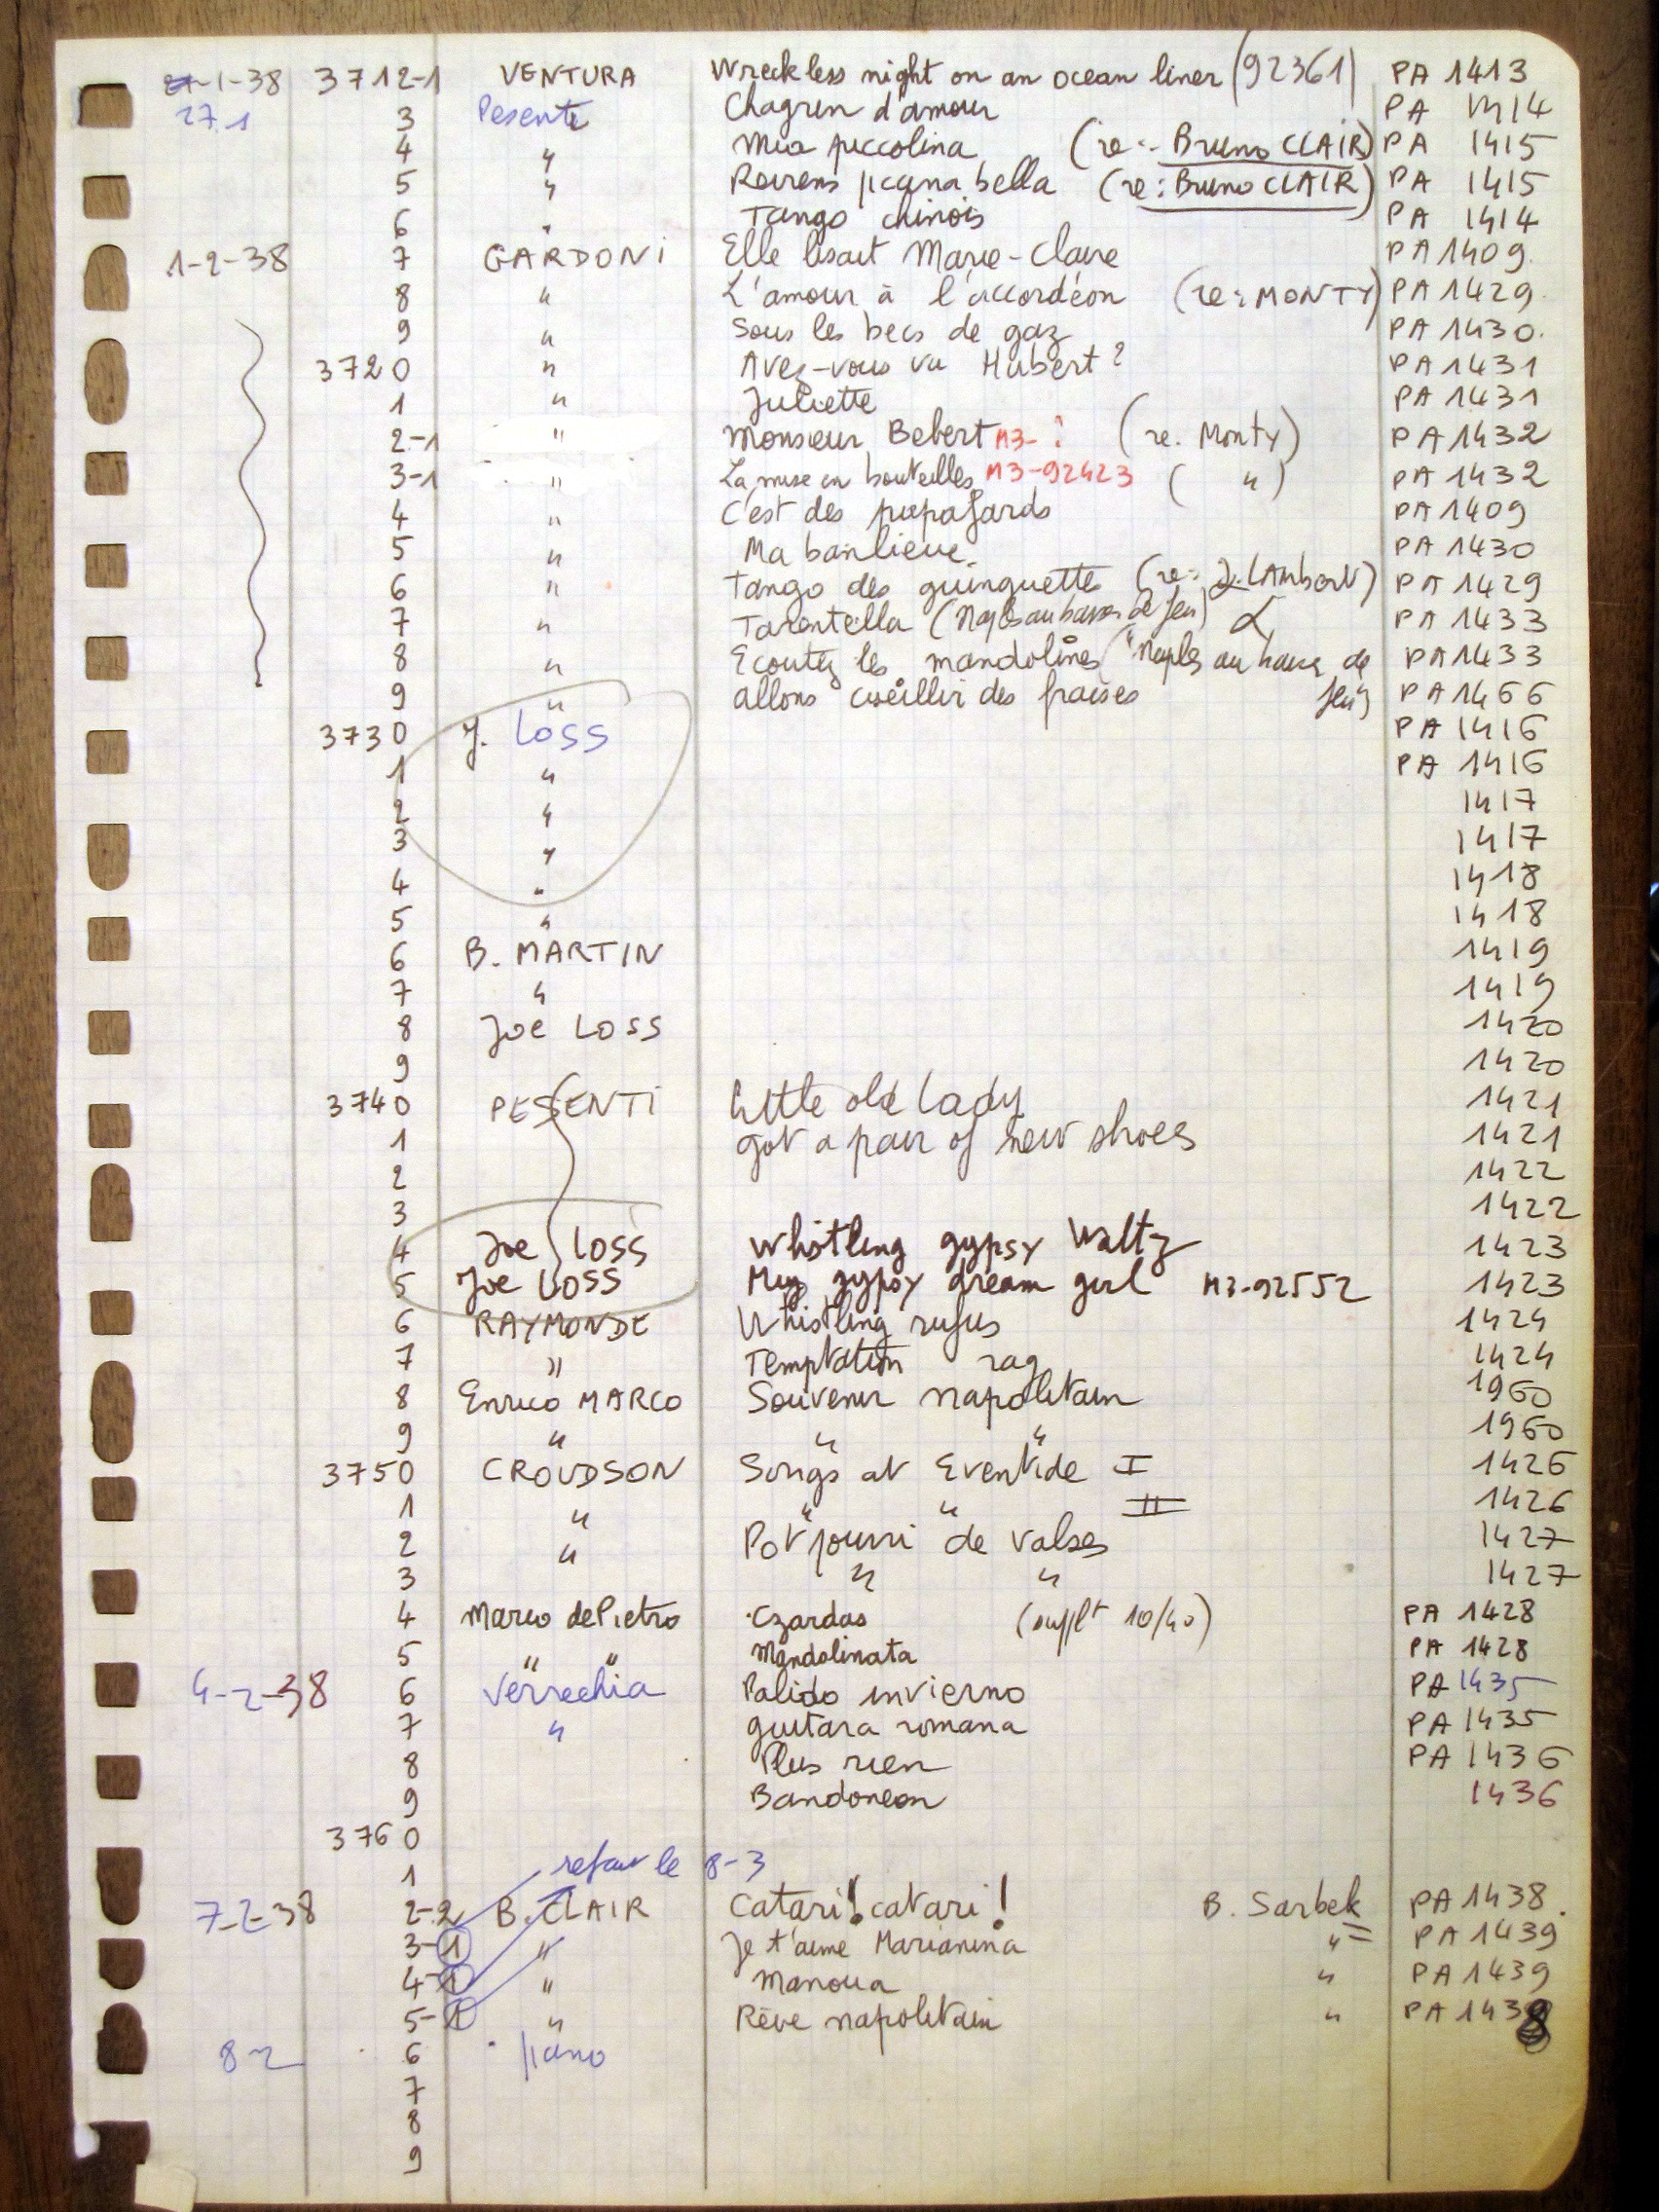 1-38 3712-1 VENTURA Wreckless night on an ocean liner (92361) PA 1413
27.1 3 Pesenti Chagrin d'amour PA 1414
4 " Mia piccolina (re: Bruno CLAIR) PA 1415
5 " Reviens piccina bella (re: Bruno CLAIR) PA 1415
6 " Tango chinois PA 1414
1-2-38 7 GARDONI Elle lisait Marie-Claire PA 1409.
8 " L'amour à l'accordéon (re: MONTY) PA 1429.
9 " Sous les becs de gaz PA 1430.
3720 " Avez-vous vu Hubert? PA 1431
1 " Juliette PA 1431
2-1 " Monsieur Bebert M3-? (re. Monty) PA 1432
3-1 " La mise en bouteilles M3-92423 ( " ) PA 1432
4 " C'est des PA 1409
5 " Ma banlieue PA 1430
6 " Tango des guinguettes (re: J. LAmbert) PA 1429
7 " Tarentella (Naples au baiser de feu) PA 1433
8 " Ecoutez les mandolines ("Naples au baiser de PA 1433
feu")
9 " allons cueillir des fraises PA 1466
3730 J. LOSS PA 1416
1 " PA 1416
2 " 1417
3 " 1417
4 " 1418
5 " 1418
6 B. MARTIN 1419
7 " 1419
8 Joe LOSS 1420
9 1420
3740 PESENTI Little old lady 1421
1 got a pair of new shoes 1421
2 1422
3 1422
4 Joe LOSS Whistling gypsy Waltz 1423
5 Joe LOSS My gypsy dream girl M3-92552 1423
6 RAYMONDE Whistling rufus 1424
7 " Temptation rag 1424
8 Enrico MARCO Souvenir napolitain 1960
9 " " " 1960
3750 CROUDSON Songs at Eventide I 1426
1 " " " II 1426
2 " Pot pourri de valses 1427
3 " " 1427
4 Marco de Pietro Czardas (supplt 10/40) PA 1428
5 " " Mandolinata PA 1428
4-2-38 6 Verrechia Palido invierno PA 1435
7 " guitara romana PA 1435
8 Plus rien PA 1436
9 Bandoneon 1436
3760
1 refait le 8-3
7-2-38 2-2 B. CLAIR Catari! catari! B. Sarbek PA 1438.
3-1 " Je t'aime Marianina " PA 1439
4-1 " Manoua " PA 1439
5-1 " Rêve napolitain " PA 1438
8-2 6 piano
7
8
9